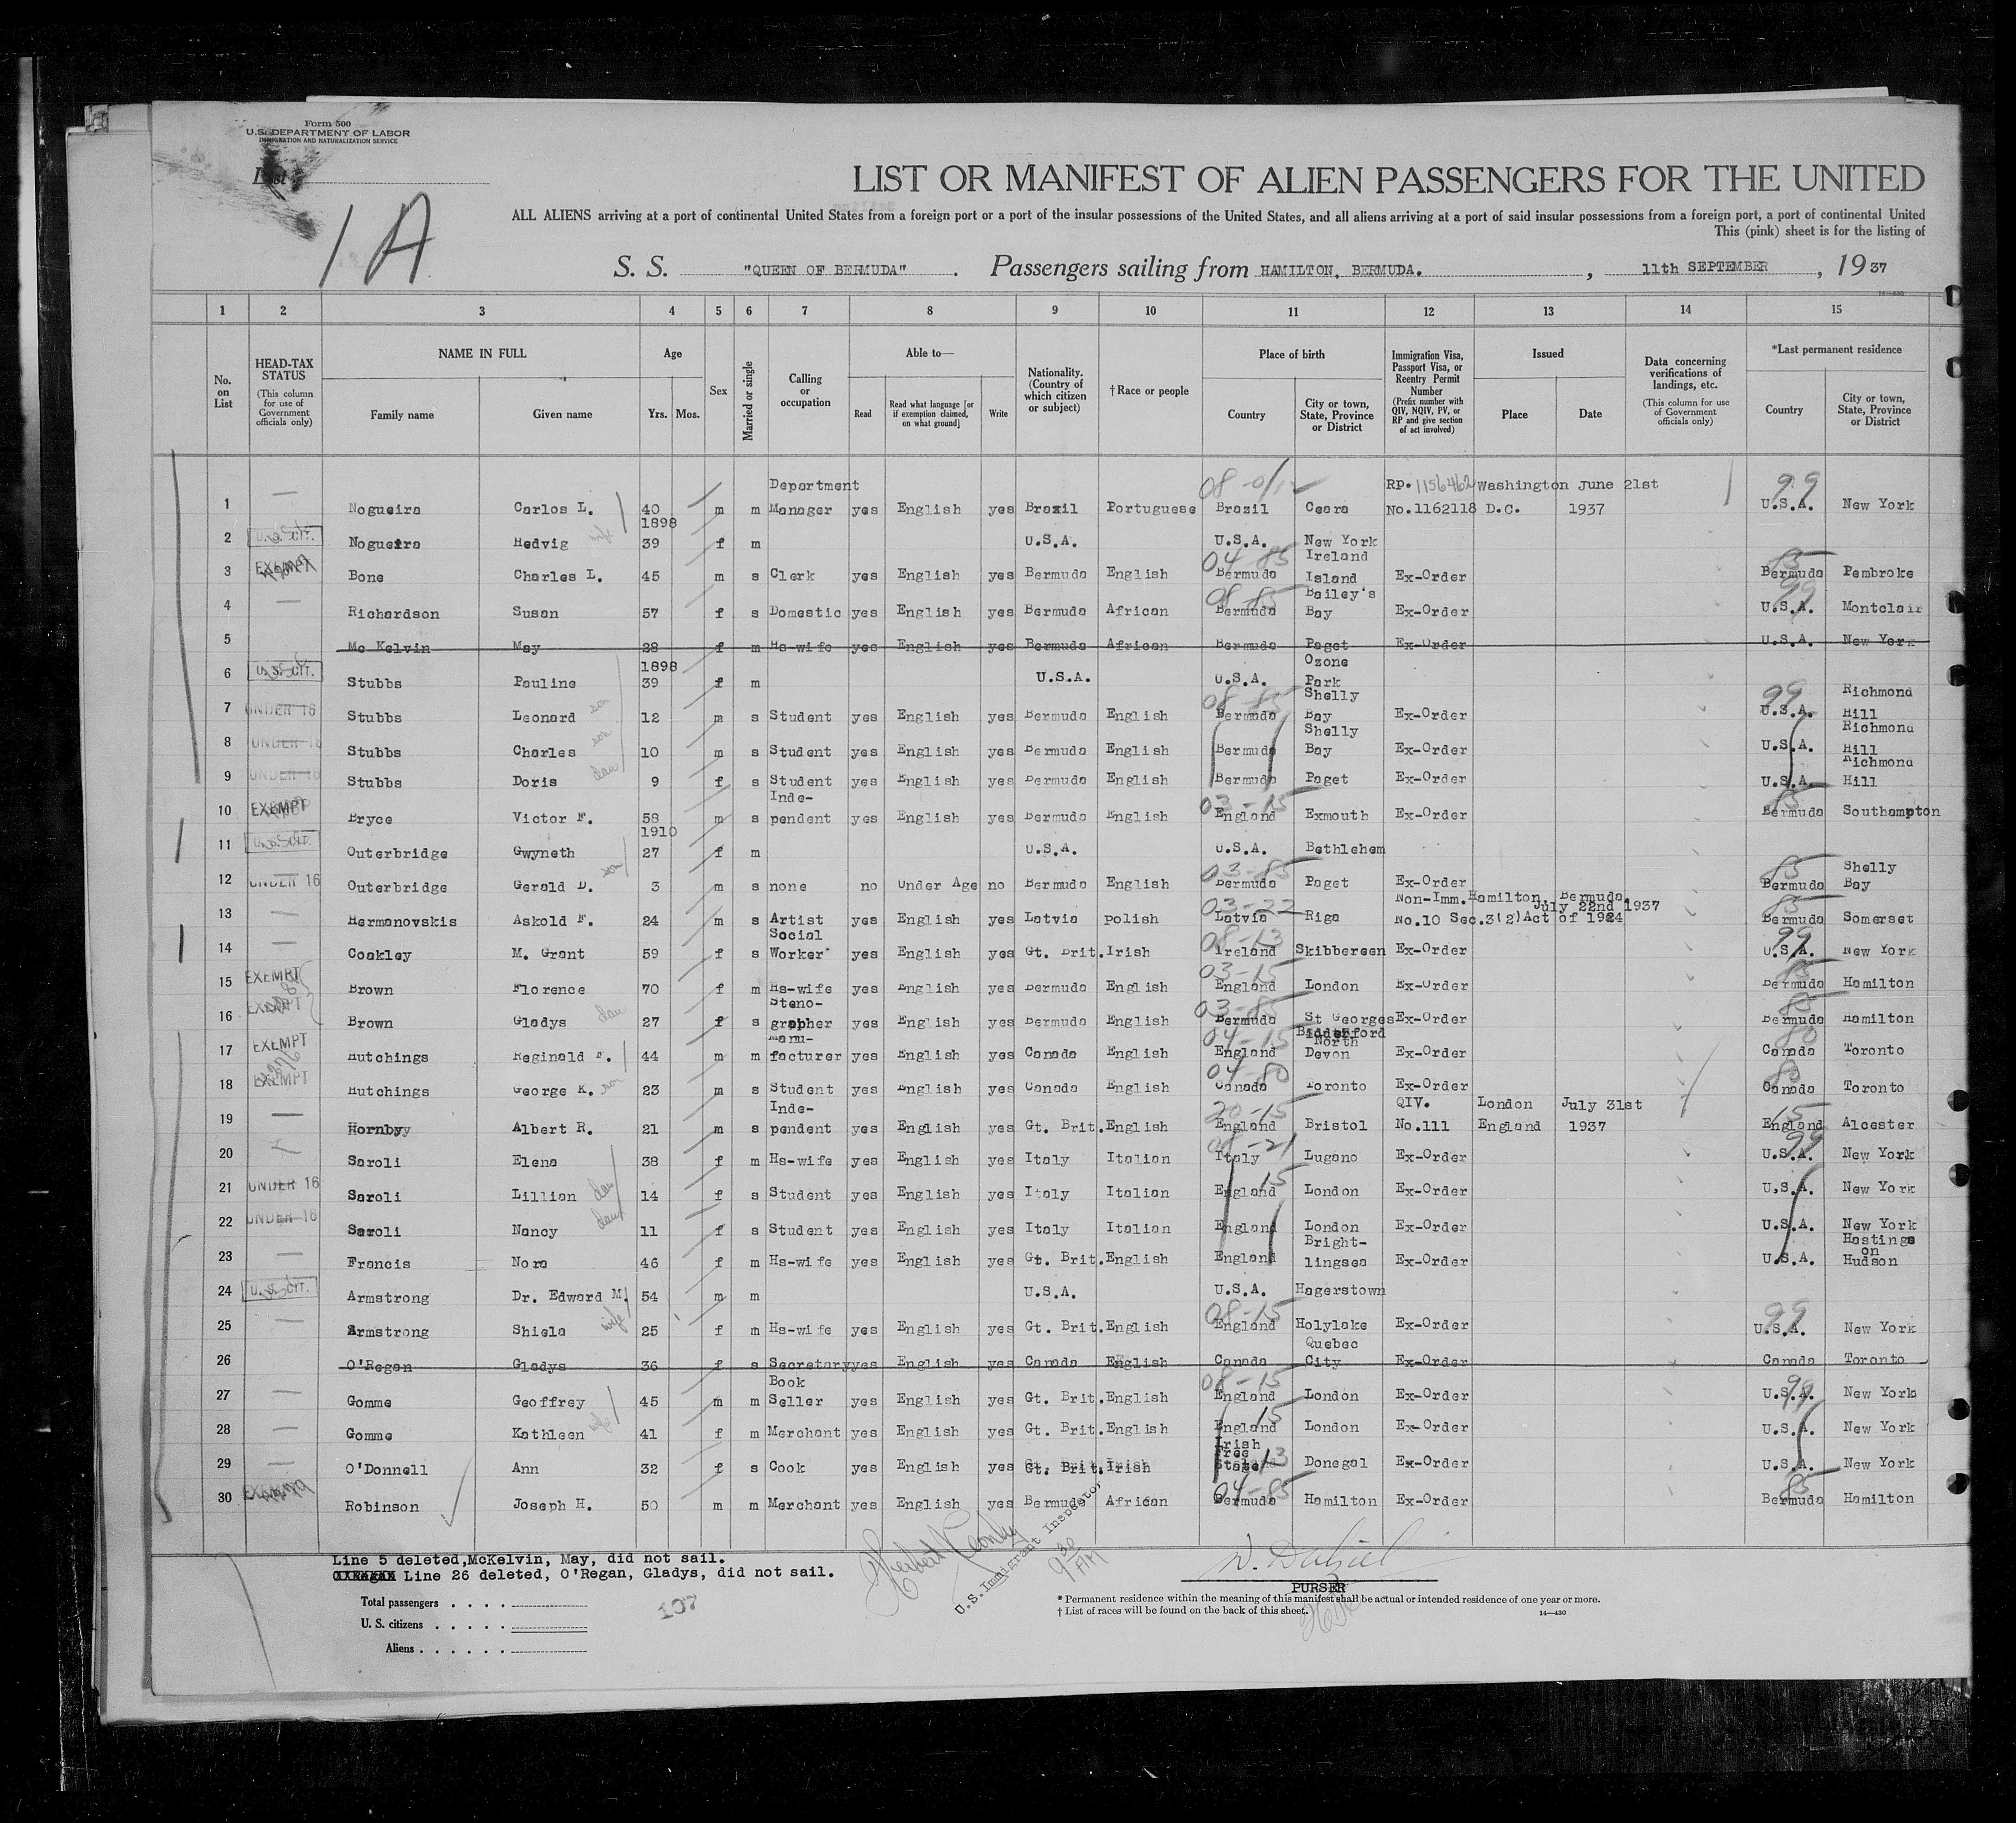 Form 500
U.S. DEPARTMENT OF LABOR
IMMIGRATION AND NATURALIZATION SERVICE
List
1A
LIST OR MANIFEST OF ALIEN PASSENGERS FOR THE UNITED
ALL ALIENS arriving at a port of continental United States from a foreign port or a port of the insular possessions of the United States, and all aliens arriving at a port of said insular possessions from a foreign port, a port of continental United
This (pink) sheet is for the listing of
S. S. "QUEEN OF BERMUDA" . Passengers sailing from HAMILTON, BERMUDA. , 11th SEPTEMBER , 19 37
1 2 3 4 5 6 7 8 9 10 11 12 13 14 15
No. on List
HEAD-TAX STATUS (This column for use of Government officials only)
NAME IN FULL Family name Given name
Age Yrs. Mos.
Sex
Married or single
Calling or occupation
Able to— Read Read what language [or if exemption claimed, on what ground] Write
Nationality. (Country of which citizen or subject)
† Race or people
Place of birth Country City or town, State, Province or District
Immigration Visa, Passport Visa, or Reentry Permit Number (Prefix number with QIV, NQIV, PV, or RP and give section of act involved)
Issued Place Date
Data concerning verifications of landings, etc. (This column for use of Government officials only)
*Last permanent residence Country City or town, State, Province or District
1 Nogueira Carlos L. 40 m m Department Manager yes English yes Brazil Portuguese Brazil Ceara RP. 1156462 No.1162118 Washington D.C. June 21st 1937 99 U.S.A. New York
2 U.S. CIT. Nogueira Hedvig wife 1898 39 f m U.S.A. U.S.A. New York
3 EXEMPT Bone Charles L. 45 m s Clerk yes English yes Bermuda English 04-85 Bermuda Ireland Island Ex-Order 85 Bermuda Pembroke
4 Richardson Susan 57 f s Domestic yes English yes Bermuda African 08-85 Bermuda Bailey's Bay Ex-Order 99 U.S.A. Montclair
5 Mc Kelvin May 28 f m Hs-wife yes English yes Bermuda African Bermuda Paget Ex-Order U.S.A. New York
6 U.S. CIT. Stubbs Pauline 1898 39 f m U.S.A. U.S.A. Ozone Park
7 UNDER 16 Stubbs Leonard son 12 m s Student yes English yes Bermuda English 08-85 Bermuda Shelly Bay Ex-Order 99 U.S.A. Richmond Hill
8 UNDER 16 Stubbs Charles son 10 m s Student yes English yes Bermuda English Bermuda Shelly Bay Ex-Order U.S.A. Richmond Hill
9 UNDER 16 Stubbs Doris dau 9 f s Student yes English yes Bermuda English Bermuda Paget Ex-Order U.S.A. Richmond Hill
10 EXEMPT Bryce Victor F. 58 m s Inde-pendent yes English yes Bermuda English 03-15 England Exmouth Ex-Order 85 Bermuda Southampton
11 U.S. CIT. Outerbridge Gwyneth 1910 27 f m U.S.A. U.S.A. Bethlehem
12 UNDER 16 Outerbridge Gerald D. son 3 m s none no Under Age no Bermuda English 03-85 Bermuda Paget Ex-Order 85 Bermuda Shelly Bay
13 Hermanovskis Askold F. 24 m s Artist yes English yes Latvia polish 03-22 Latvia Riga Non-Imm. No.10 Sec.3(2)Act of 1924 Hamilton, Bermuda, July 22nd 1937 85 Bermuda Somerset
14 Coakley M. Grant 59 f s Social Worker yes English yes Gt. Brit. Irish 08-13 Ireland Skibbereen Ex-Order 99 U.S.A. New York
15 EXEMPT Brown Florence 70 f m Hs-wife yes English yes Bermuda English 03-15 England London Ex-Order 85 Bermuda Hamilton
16 EXEMPT Brown Gladys dau 27 f s Steno-grapher yes English yes Bermuda English 03-85 Bermuda St Georges Ex-Order 85 Bermuda Hamilton
17 EXEMPT Hutchings Reginald F. 44 m m Manu-facturer yes English yes Canada English 04-15 England North Devon Ex-Order 80 Canada Toronto
18 EXEMPT Hutchings George K. son 23 m s Student yes English yes Canada English 04-80 Canada Toronto Ex-Order 80 Canada Toronto
19 Hornby Albert R. 21 m s Inde-pendent yes English yes Gt. Brit. English 20-15 England Bristol QIV. No.111 London England July 31st 1937 15 England Alcester
20 Saroli Elena 38 f m Hs-wife yes English yes Italy Italian 08-21 Italy Lugano Ex-Order 99 U.S.A. New York
21 UNDER 16 Saroli Lillian dau 14 f s Student yes English yes Italy Italian 15 England London Ex-Order U.S.A. New York
22 UNDER 16 Saroli Nancy dau 11 f s Student yes English yes Italy Italian England London Ex-Order U.S.A. New York
23 Francis Nora 46 f m Hs-wife yes English yes Gt. Brit. English England Bright-lingsea Ex-Order U.S.A. Hastings on Hudson
24 U.S. CIT. Armstrong Dr. Edward M. 54 m m U.S.A. U.S.A. Hagerstown
25 Armstrong Shiela wife 25 f m Hs-wife yes English yes Gt. Brit. English 08-15 England Holylake Ex-Order 99 U.S.A. New York
26 O'Regan Gladys 36 f s Secretary yes English yes Canada English Canada Quebec City Ex-Order Canada Toronto
27 Gomme Geoffrey 45 m m Book Seller yes English yes Gt. Brit. English 08-15 England London Ex-Order 99 U.S.A. New York
28 Gomme Kathleen wife 41 f m Merchant yes English yes Gt. Brit. English 15 England London Ex-Order U.S.A. New York
29 O'Donnell Ann 32 f s Cook yes English yes Gt. Brit. Irish Irish Free State 13 Donegal Ex-Order U.S.A. New York
30 Robinson Joseph H. 50 m m Merchant yes English yes Bermuda African 04-85 Bermuda Hamilton Ex-Order 85 Bermuda Hamilton
Line 5 deleted,McKelvin, May, did not sail.
Line 26 deleted, O'Regan, Gladys, did not sail.
Total passengers . . . .
U. S. citizens . . . . .
Aliens . . . . . .
107
U.S. Immigrant Inspector
9 30 AM
PURSER
* Permanent residence within the meaning of this manifest shall be actual or intended residence of one year or more.
† List of races will be found on the back of this sheet.
14—430